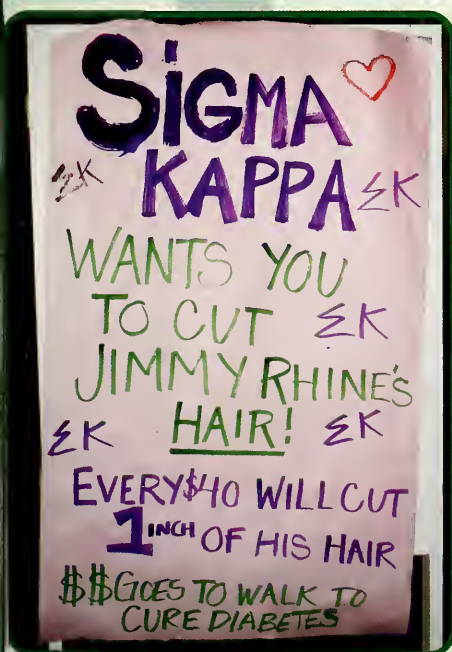 SiGMA
KAPPA
ΣK ΣK
WANTS YOU
TO CUT ΣK
JIMMY RHINE'S
ΣK HAIR! ΣK
EVERY $40 WILL CUT
1 INCH OF HIS HAIR
$$ GOES TO WALK TO
CURE DIABETES